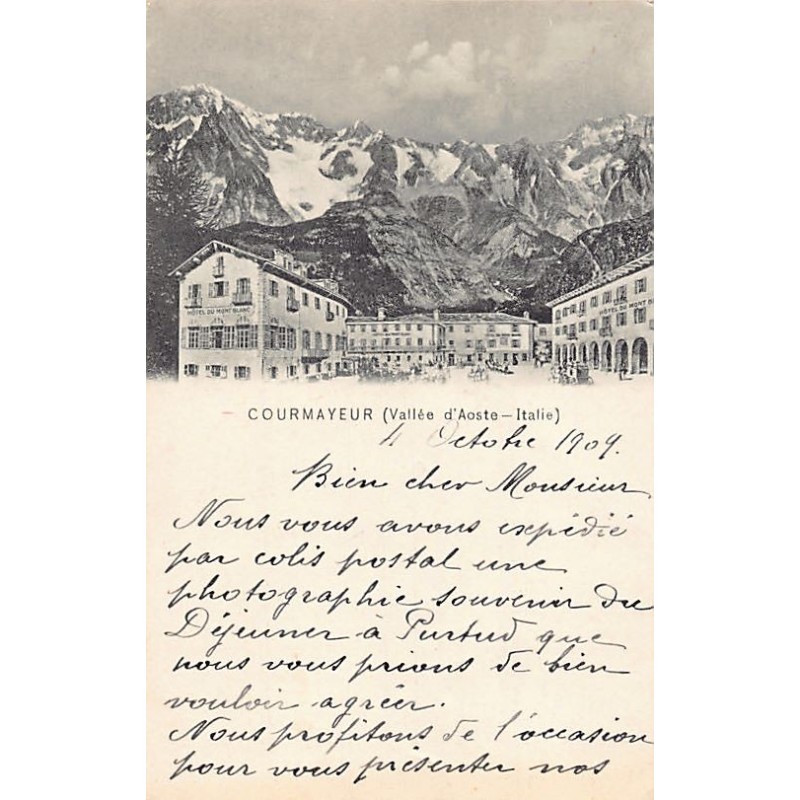 HÔTEL DU MONT BLANC
HÔTEL DU MONT B
COURMAYEUR (Vallée d'Aoste—Italie)
4 Octobre 1909.
Bien cher Monsieur
Nous vous avons expédié
par colis postal une
photographie souvenir du
Déjeuner à Purtud que
nous vous prions de bien
vouloir agréer.
Nous profitons de l'occasion
pour vous présenter nos